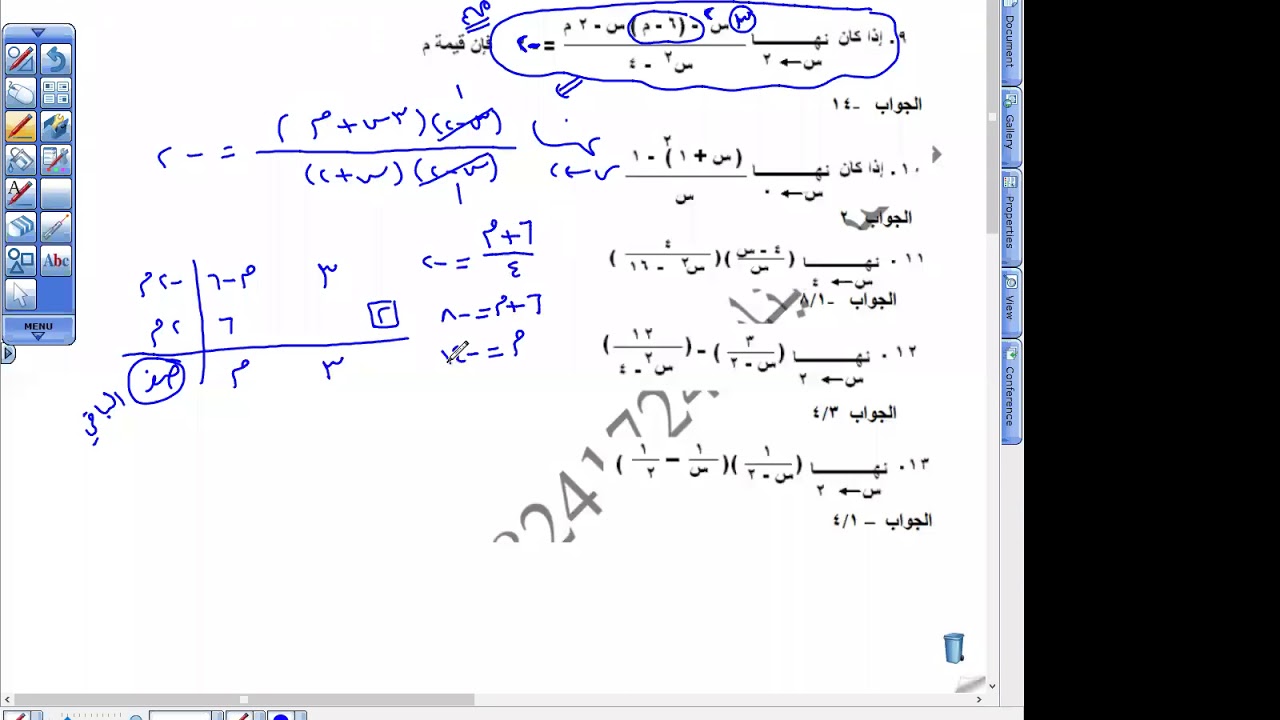 ٩. إذا كان نهــــا س ← ٢ (٣س٢ - (٦ - م)س - ٢ م) / (س٢ - ٤) = -٢ فإن قيمة م
الجواب -١٤
١٠. إذا كان نهــــا س ← ٠ ((س + ١)٢ - ١) / س
الجواب ٢
١١. نهــــا س ← ٤ ((٤ - س) / س)(٤ / (س٢ - ١٦))
الجواب -٨/١
١٢. نهــــا س ← ٢ (٣ / (س - ٢)) - (١٢ / (س٢ - ٤))
الجواب ٤/٣
١٣. نهــــا س ← ٢ (١ / (س - ٢))(١ / س - ١ / ٢)
الجواب – ٤/١
نهـا س ← ٢ (س-٢)(٣س+م) / (س-٢)(س+٢) = -٢
١
١
(٦+م) / ٤ = -٢
٦+م = -٨
م = -١٤
٣ م-٦ -٢م
٢ ٦ ٢م
٣ م صفر
الباقي
MENU
Abc
Document
Gallery
Properties
View
Conference